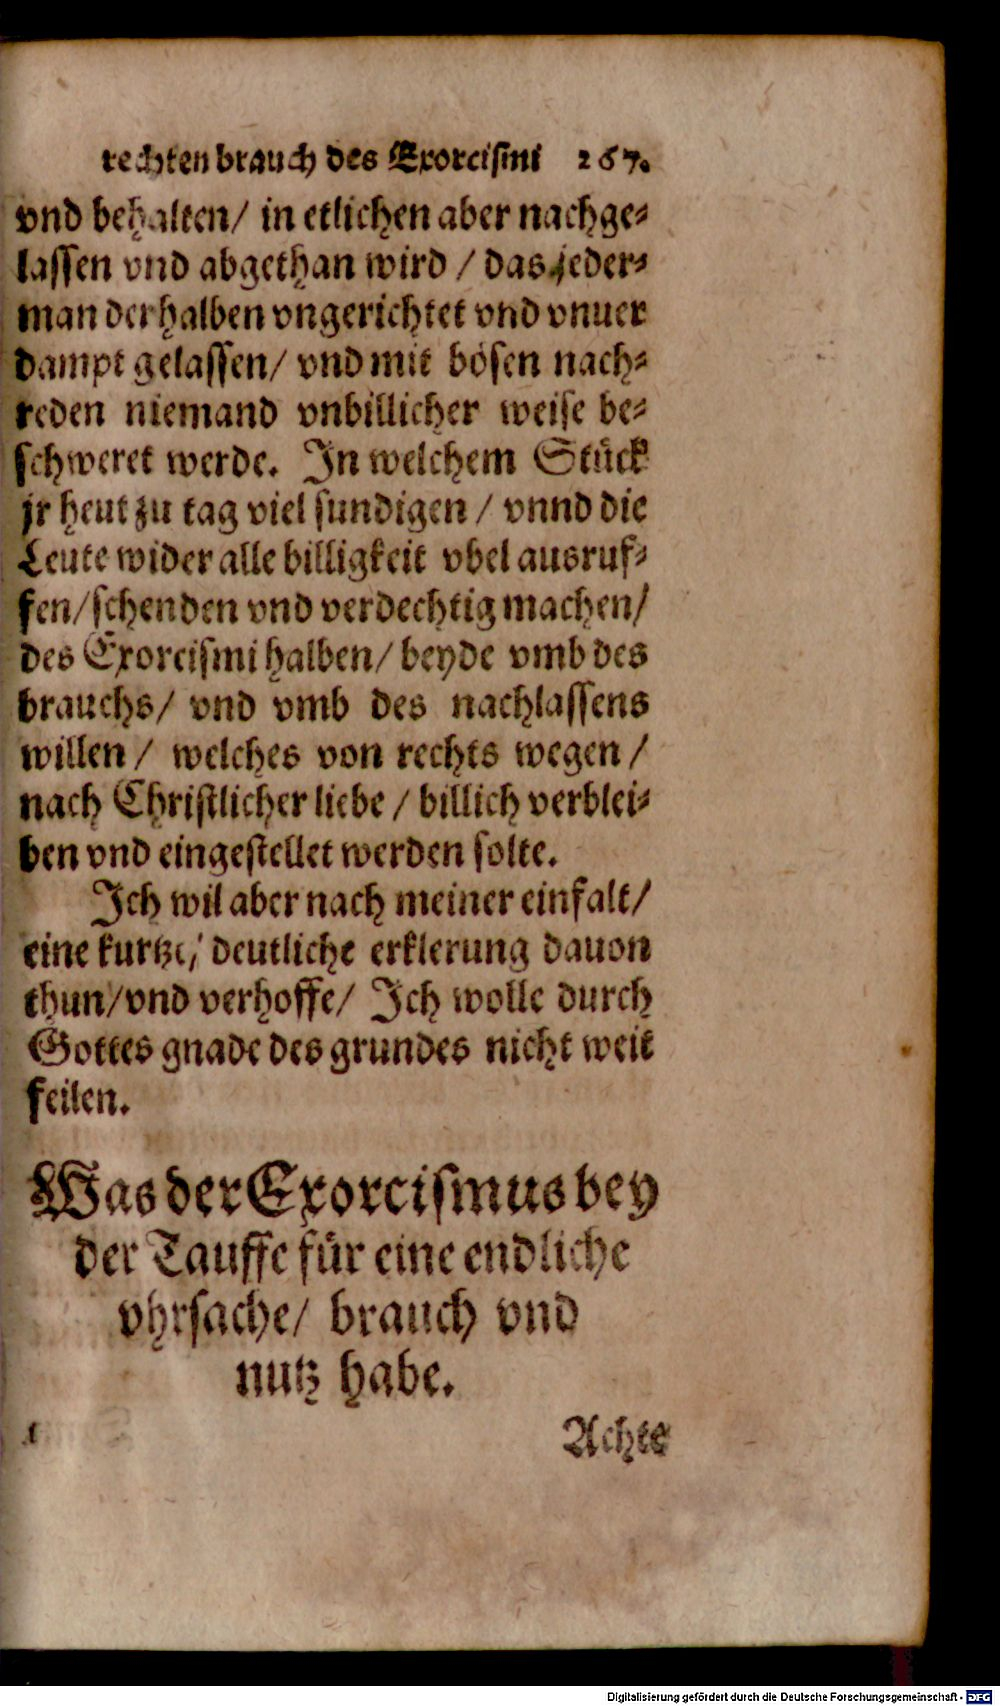 rechten brauch des Exorcismi 267.
vnd behalten/ in etlichen aber nachge-
lassen vnd abgethan wird / das jeder-
man derhalben vngerichtet vnd vnuer
dampt gelassen/ vnd mit bösen nach-
reden niemand vnbillicher weise be-
schweret werde. In welchem Stück
jr heut zu tag viel sundigen / vnnd die
Leute wider alle billigkeit vbel ausruf-
fen/schenden vnd verdechtig machen/
des Exorcismi halben/ beyde vmb des
brauchs/ vnd vmb des nachlassens
willen / welches von rechts wegen /
nach Christlicher liebe / billich verblei-
ben vnd eingestellet werden solte.
Ich wil aber nach meiner einfalt/
eine kurtze/ deutliche erklerung dauon
thun/vnd verhoffe/ Ich wolle durch
Gottes gnade des grundes nicht weit
feilen.
Was der Exorcismus bey
der Tauffe für eine endliche
vhrsache/ brauch vnd
nutz habe.
Achte
Digitalisierung gefördert durch die Deutsche Forschungsgemeinschaft - DFG